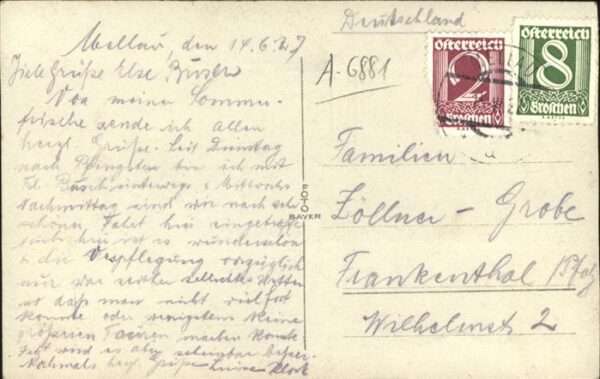 Mellau, den 14.6.27
Viele Grüße Else Busch
Von meiner Sommer-
frische sende ich allen
herzl. Grüße. Seit Dienstag
nach Pfingsten bin ich mit
Frl. Busch unterwegs & Mittwoch
Nachmittag sind wir nach sehr
schöner Fahrt hier eingetroffen
hier ist es wunderschön
& die Verpflegung vorzüglich
nur war bisher schlechtes Wetter
so daß man nicht viel fort
konnte oder wenigstens keine
größeren Touren machen konnte
wird es aber scheinbar besser.
Nochmals herzl. Grüße
FOTO
BAYER
Deutschland
A-6881
Österreich
2
Groschen
Österreich
8
Groschen
Familien
Zöllner - Grobe
Frankenthal Pfalz
Wilhelmstr 2